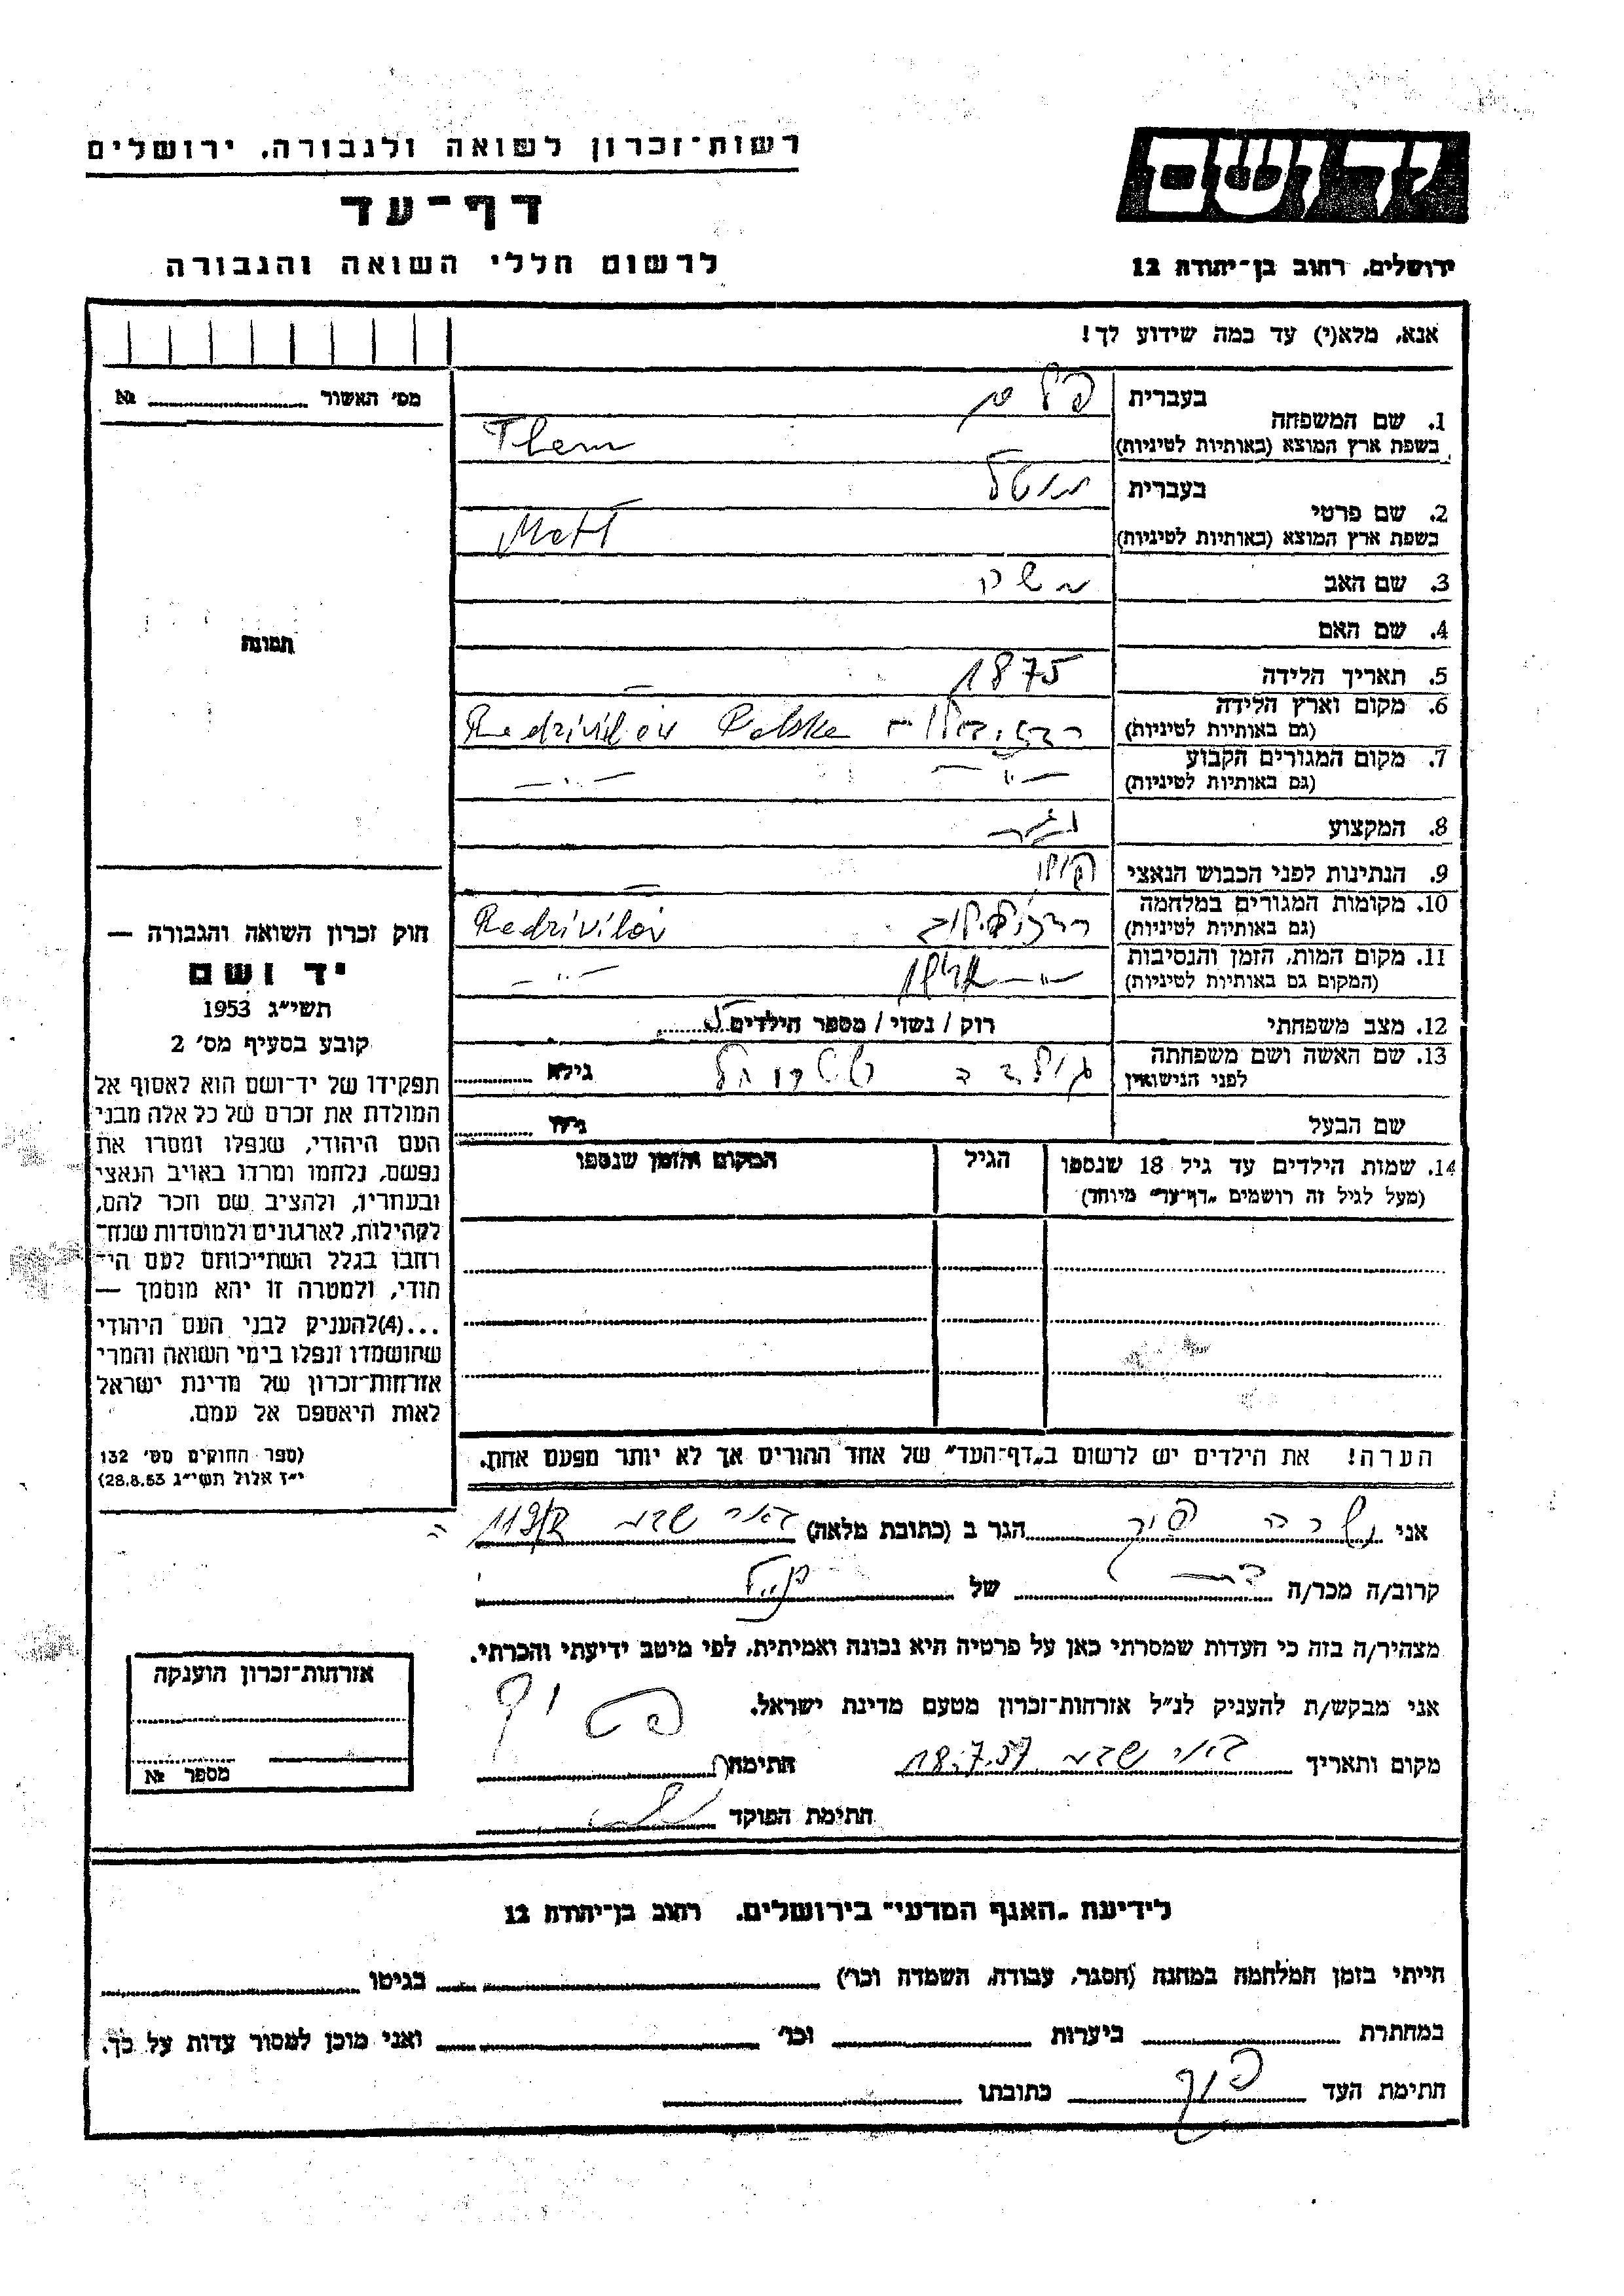 רשות־זכרון לשואה ולגבורה, ירושלים
דף־עד
לרשום חללי השואה והגבורה
יד ושם
ירושלים, רחוב בן־יהודה 12
אנא, מלא(י) עד כמה שידוע לך!
מס׳ האשור № ..........
תמונה
חוק זכרון השואה והגבורה —
יד ושם
תשי״ג 1953
קובע בסעיף מס׳ 2
תפקידו של יד־ושם הוא לאסוף אל
המולדת את זכרם של כל אלה מבני
העם היהודי, שנפלו ומסרו את
נפשם, נלחמו ומרדו באויב הנאצי
ובעוזריו, ולהציב שם וזכר להם,
לקהילות, לארגונים ולמוסדות שנח־
רבו בגלל השתייכותם לעם הי־
הודי, ולמטרה זו יהא מוסמך —
...(4)להעניק לבני העם היהודי
שהושמדו ונפלו בימי השואה והמרי
אזרחות־זכרון של מדינת ישראל
לאות היאספם אל עמם.
(ספר החוקים מס׳ 132
י״ז אלול תשי״ג 28.8.53)
1. שם המשפחה בעברית
בשפת ארץ המוצא (באותיות לטיניות)
2. שם פרטי בעברית מוטל
בשפת ארץ המוצא (באותיות לטיניות) Motl
3. שם האב
4. שם האם
5. תאריך הלידה 1875
6. מקום וארץ הלידה
(גם באותיות לטיניות) Redzivilov Polska
7. מקום המגורים הקבוע
(גם באותיות לטיניות) — " — — " —
8. המקצוע
9. הנתינות לפני הכבוש הנאצי
10. מקומות המגורים במלחמה
(גם באותיות לטיניות) Redzivilov
11. מקום המות, הזמן והנסיבות
(המקום גם באותיות לטיניות) — " — — " —
12. מצב משפחתי רוק / נשוי / מספר הילדים 5
13. שם האשה ושם משפחתה
לפני הנישואין גילא ..........
שם הבעל גילו ..........
14. שמות הילדים עד גיל 18 שנספו הגיל המקום והזמן שנספו
(מעל לגיל זה רושמים „דף־עד״ מיוחד)
הערה! את הילדים יש לרשום ב„דף־העד״ של אחד ההורים אך לא יותר מפעם אחת.
אני שרה פיק הגר ב (כתובת מלאה) באר שבע
קרוב/ה מכר/ה בת של
מצהיר/ה בזה כי העדות שמסרתי כאן על פרטיה היא נכונה ואמיתית, לפי מיטב ידיעתי והכרתי.
אני מבקש/ת להעניק לנ״ל אזרחות־זכרון מטעם מדינת ישראל.
מקום ותאריך באר שבע 18.7.57 חתימה
חתימת הפוקד
אזרחות־זכרון הוענקה
מספר №
לידיעת „האגף המדעי״ בירושלים, רחוב בן־יהודה 12
הייתי בזמן המלחמה במחנה (הסגר, עבודה, השמדה וכו׳) בגיטו
במחתרת ביערות וכו׳ ואני מוכן למסור עדות על כך.
חתימת העד כתובתו